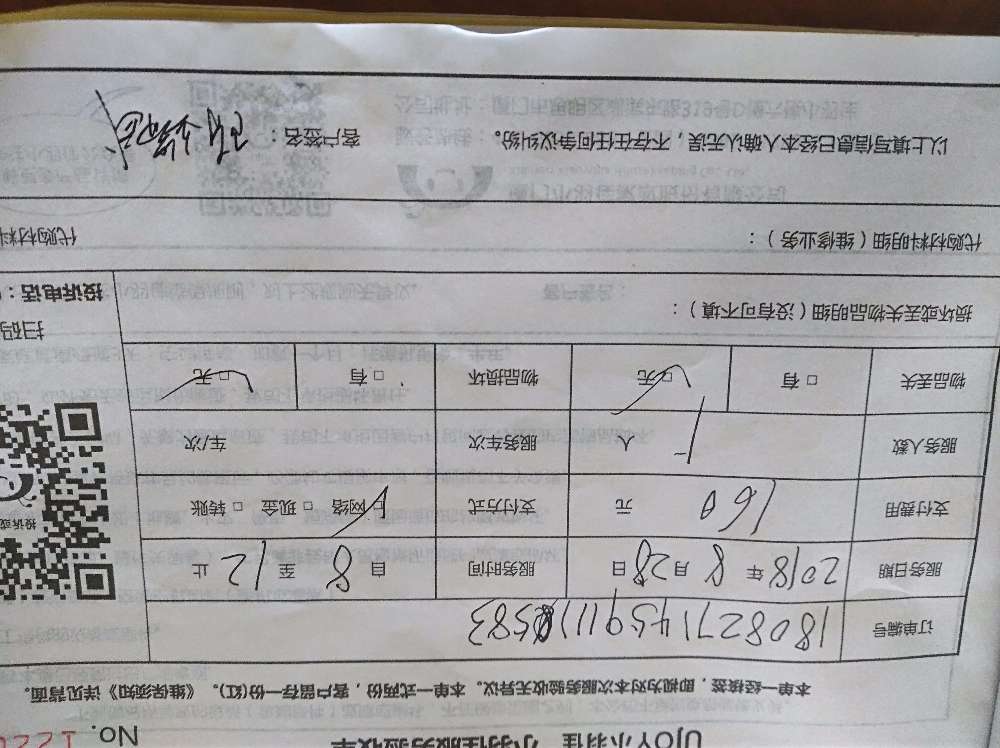 UJOY小羽佳 小羽佳服务验收单
No. 122
本单一经接签，即视为对本次服务验收无异议。本单一式两份，客户留存一份(红)。《维保须知》详见背面。
订单编号 180827145911110583
服务日期 2018年8月28日 服务时间 自8至12止
支付费用 160元 支付方式 □网络 □现金 □转账
服务人数 1人 服务车次 车/次
物品丢失 □有 □无 物品损坏 □有 □无
损坏或丢失物品明细（没有可不填）：
扫码
投诉电话：
投诉或
代购材料明细（维修业务）：
代购材料
以上填写信息已经本人确认无误，不存在任何争议纠纷。
客户签名：